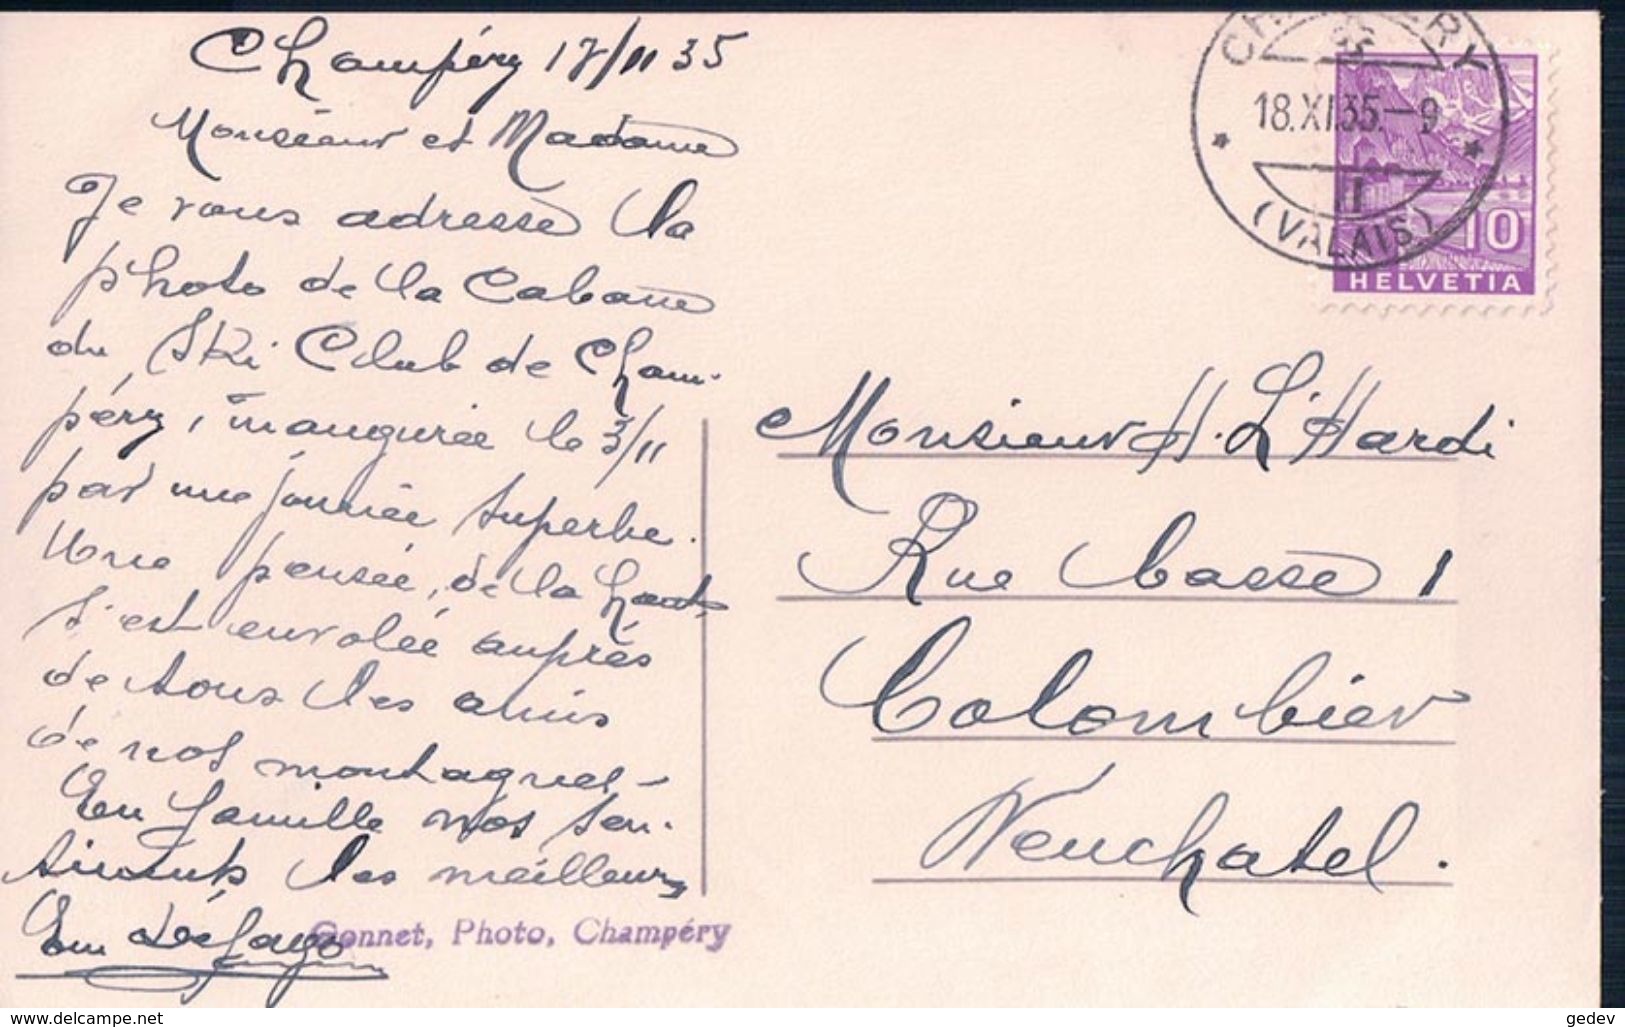 Champéry 17/11 35
Monsieur et Madame
Je vous adresse la
photo de la Cabane
du Ski Club de Cham-
péry, inaugurée le 3/11
par une journée superbe.
Une pensée, de là haut,
s'est envolée auprès
de tous les amis
de nos montagnes-
En famille nos sen-
timents les meilleurs
Em Défago
Gonnet, Photo, Champéry
CHAMPÉRY
18.XI.35.-9
II
(VALAIS)
10
HELVETIA
Monsieur H. L'Hardi
Rue basse 1
Colombier
Neuchatel.
www.delcampe.net
gedev